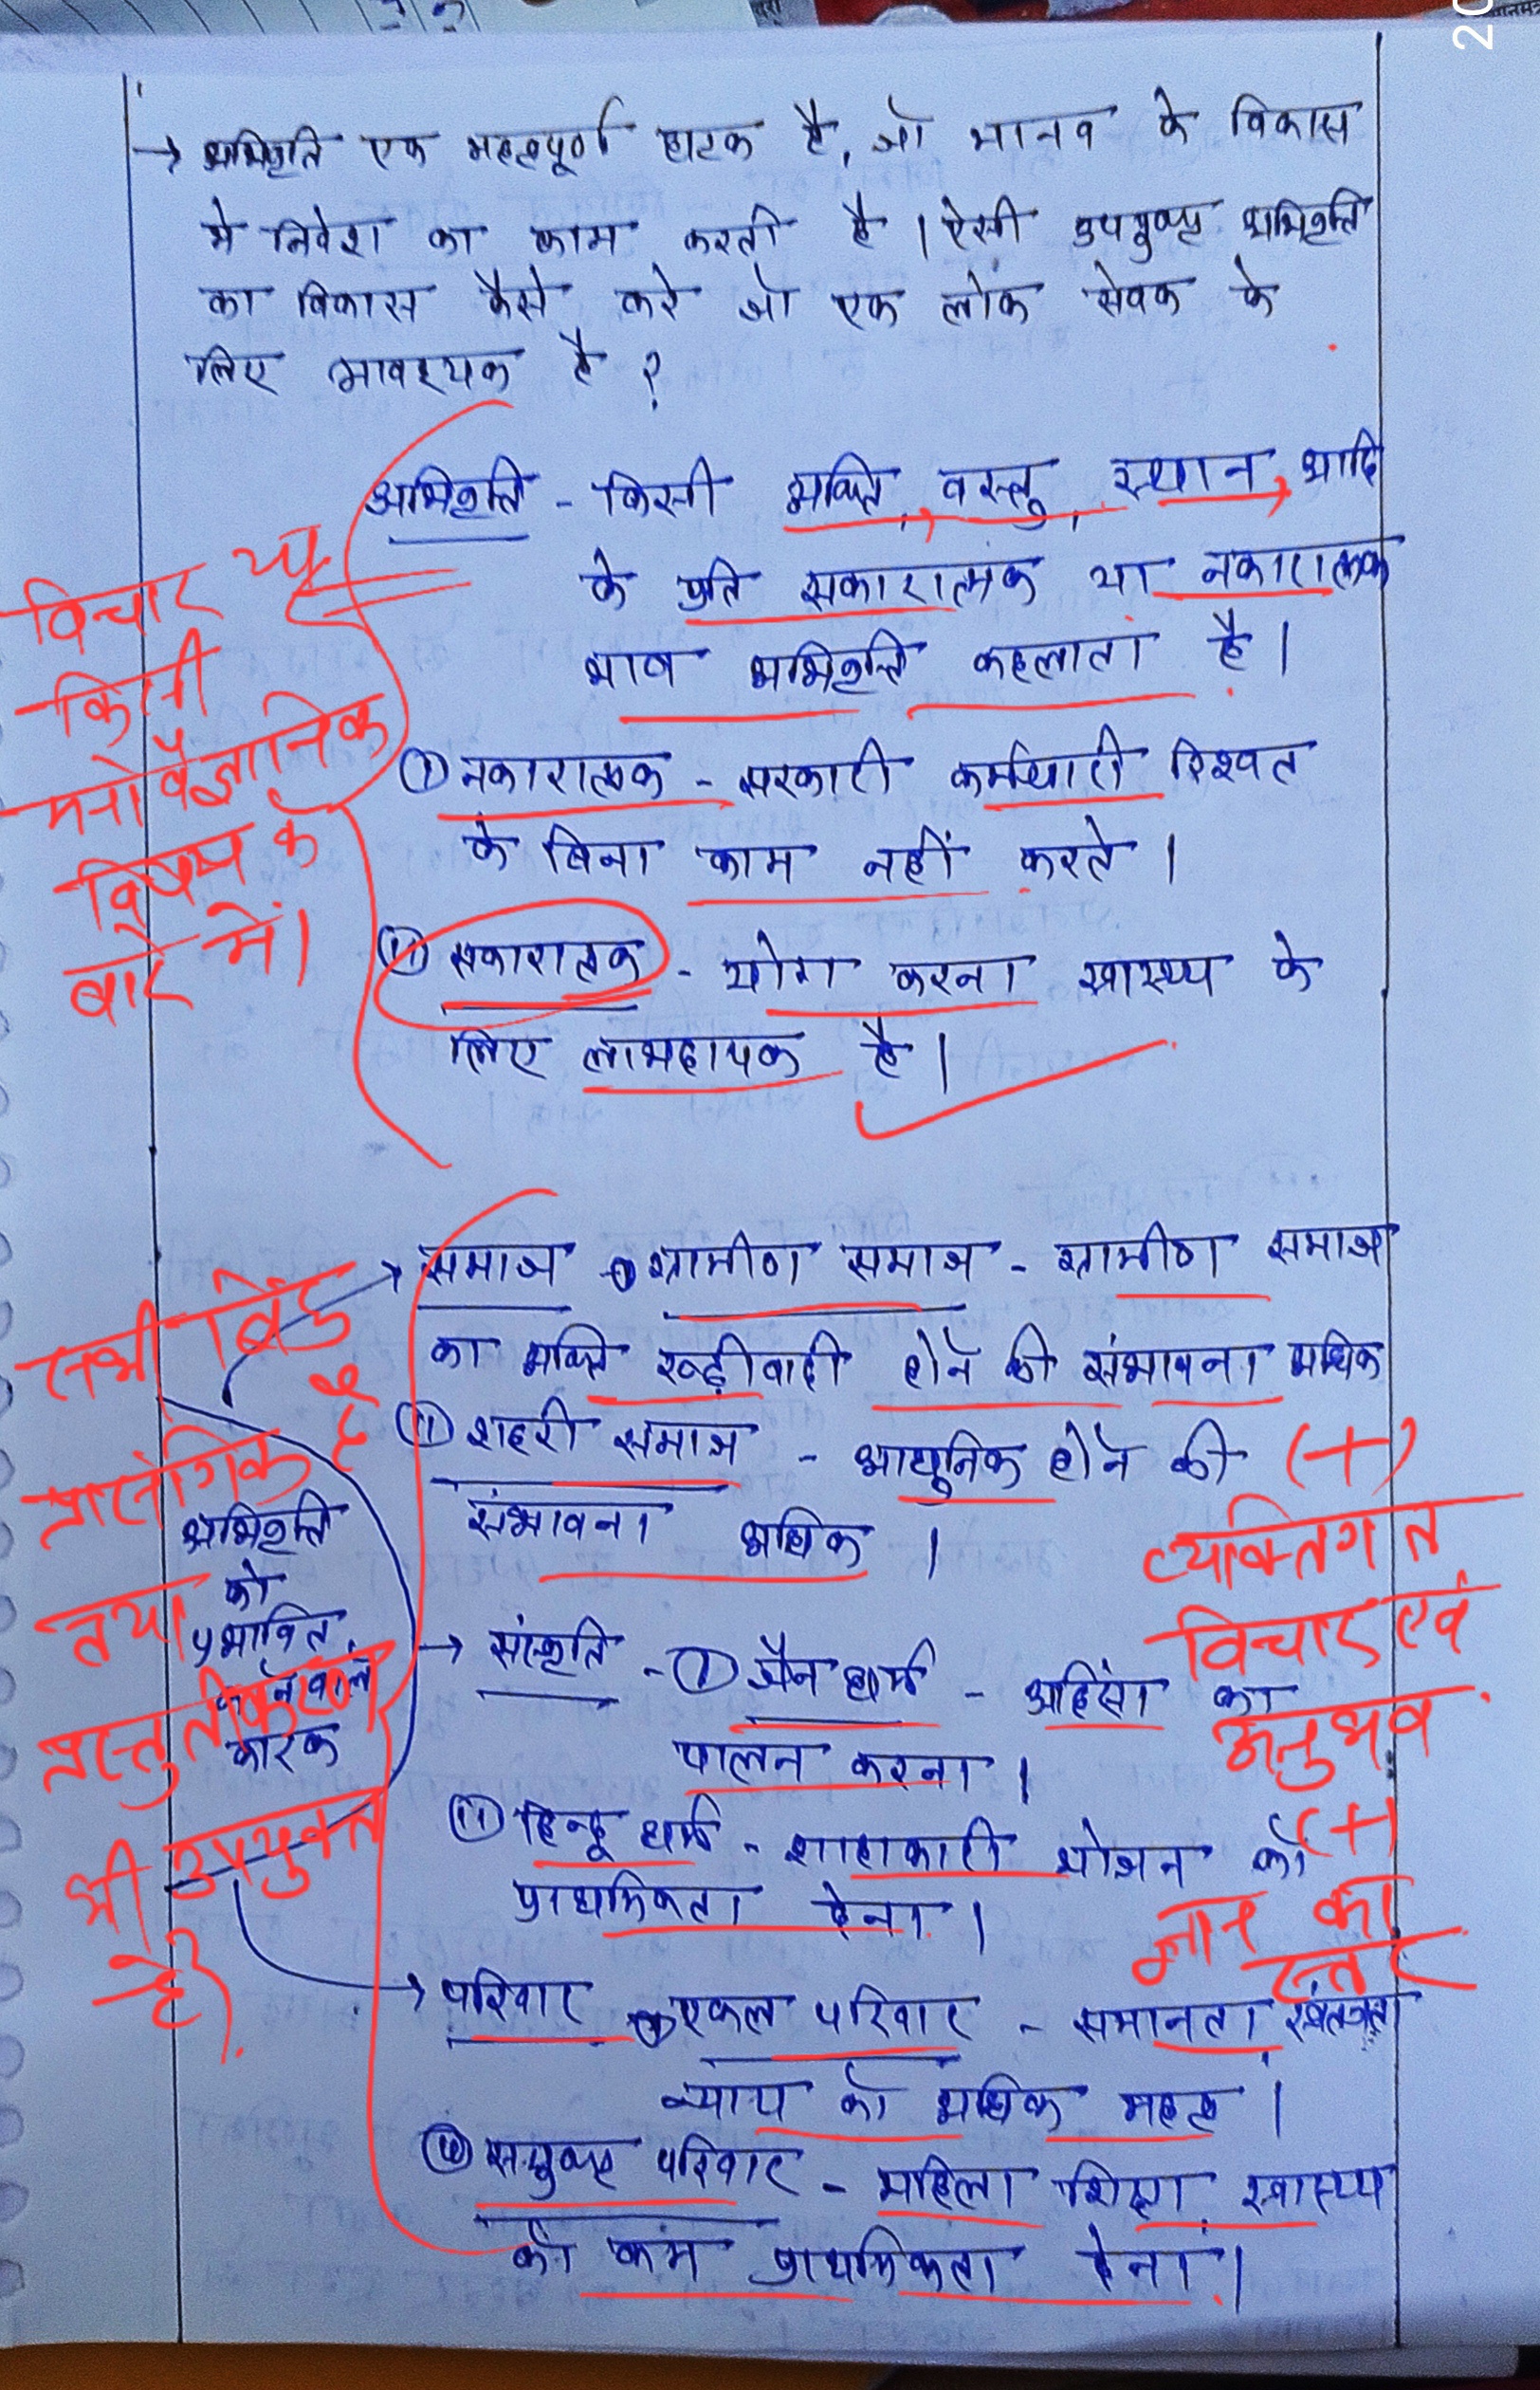 → अभिवृत्ति एक महत्वपूर्ण घटक है, जो मानव के विकास
मे निवेश का काम करती है। ऐसी उपयुक्त अभिवृत्ति
का विकास कैसे करे जो एक लोक सेवक के
लिए आवश्यक है ?
अभिवृत्ति - किसी व्यक्ति, वस्तु, स्थान, आदि
के प्रति सकारात्मक या नकारात्मक
भाव अभिवृत्ति कहलाता है।
विचार
किसी
मनोवैज्ञानिक
विषय के
बारे में।
(i) नकारात्मक - सरकारी कर्मचारी रिश्वत
के बिना काम नहीं करते।
(ii) सकारात्मक - योग करना स्वास्थ्य के
लिए लाभदायक है।
→ समाज (i) ग्रामीण समाज - ग्रामीण समाज
का व्यक्ति रूढ़ीवादी होने की संभावना अधिक
(ii) शहरी समाज - आधुनिक होने की
संभावना अधिक।
सभी बिंदु
प्रासंगिक है
तथा
प्रस्तुतीकरण
भी उपयुक्त
है।
अभिवृत्ति
को
प्रभावित
करने वाले
कारक
(+)
व्यक्तिगत
विचार एवं
अनुभव
(+)
ज्ञान का
स्तर
→ संस्कृति - (i) जैन धर्म - अहिंसा का
पालन करना।
(ii) हिन्दू धर्म - शाकाहारी भोजन को
प्राथमिकता देना।
→ परिवार (i) एकल परिवार - समानता, स्वतंत्रता
न्याय को अधिक महत्व।
(ii) संयुक्त परिवार - महिला शिक्षा, स्वास्थ्य
को कम प्राथमिकता देना।